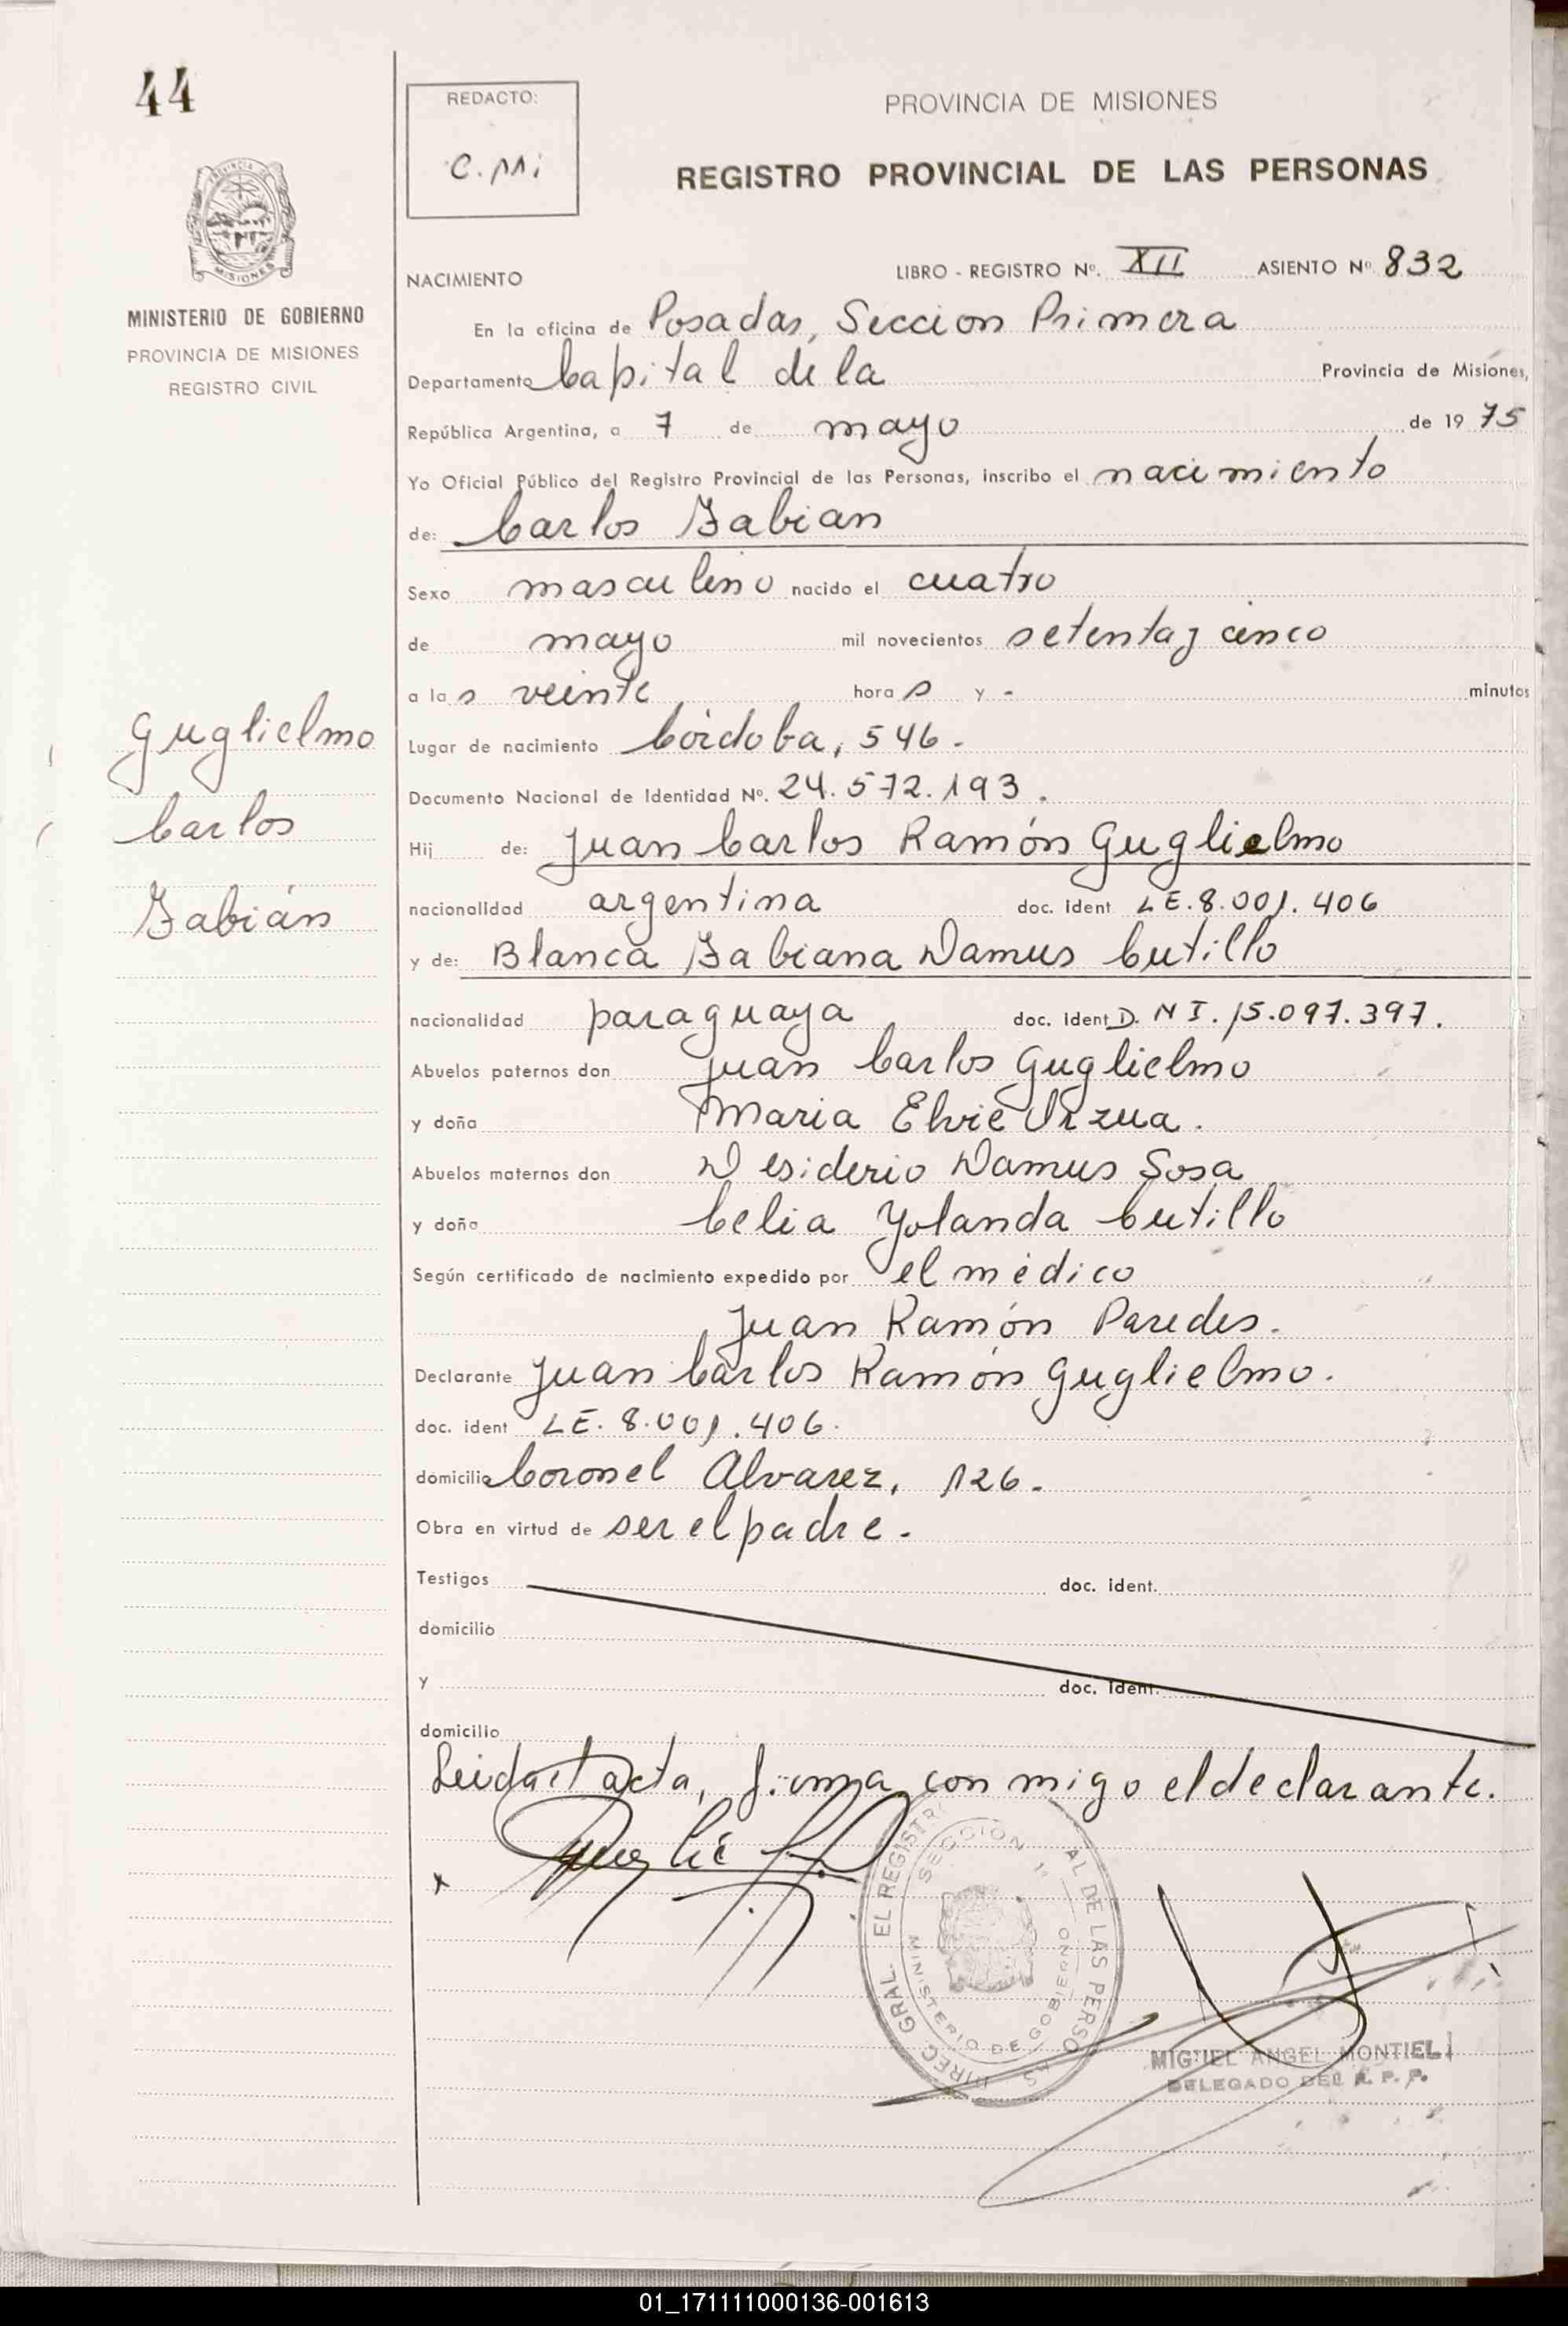 44
REDACTO:
C.Mi
PROVINCIA DE MISIONES
REGISTRO PROVINCIAL DE LAS PERSONAS
PROVINCIA
MISIONES
MINISTERIO DE GOBIERNO
PROVINCIA DE MISIONES
REGISTRO CIVIL
NACIMIENTO LIBRO - REGISTRO Nº. XII ASIENTO Nº 832
En la oficina de Posadas, Seccion Primera
Departamento Capital de la Provincia de Misiones,
República Argentina, a 7 de mayo de 1975
Yo Oficial Público del Registro Provincial de las Personas, inscribo el nacimiento
de: Carlos Fabian
Sexo masculino nacido el cuatro
de mayo mil novecientos setenta y cinco
a las veinte horas y - minutos
Lugar de nacimiento Córdoba, 546.
Documento Nacional de Identidad Nº. 24.572.193.
Guglielmo
Carlos
Fabián
Hij de: Juan Carlos Ramón Guglielmo
nacionalidad argentina doc. ident LE.8.001.406
y de: Blanca Fabiana Damus Cutillo
nacionalidad paraguaya doc. ident D.NI.15.097.397.
Abuelos paternos don Juan Carlos Guglielmo
y doña Maria Elvie Urzua.
Abuelos maternos don Desiderio Damus Sosa
y doña Celia Yolanda Cutillo
Según certificado de nacimiento expedido por el médico
Juan Ramón Paredes.
Declarante Juan Carlos Ramón Guglielmo.
doc. ident LE.8.001.406.
domicilio Coronel Alvarez, 126.
Obra en virtud de ser el padre.
Testigos doc. ident.
domicilio
y doc. ident.
domicilio
Leida el acta, firma con migo el declarante.
DIREC. GRAL. EL REGISTR AL DE LAS PERSO AS
SECCION 1ª
MINISTERIO DE GOBIERNO
MIGUEL ANGEL MONTIEL
DELEGADO DEL R. P. P.
01_171111000136-001613